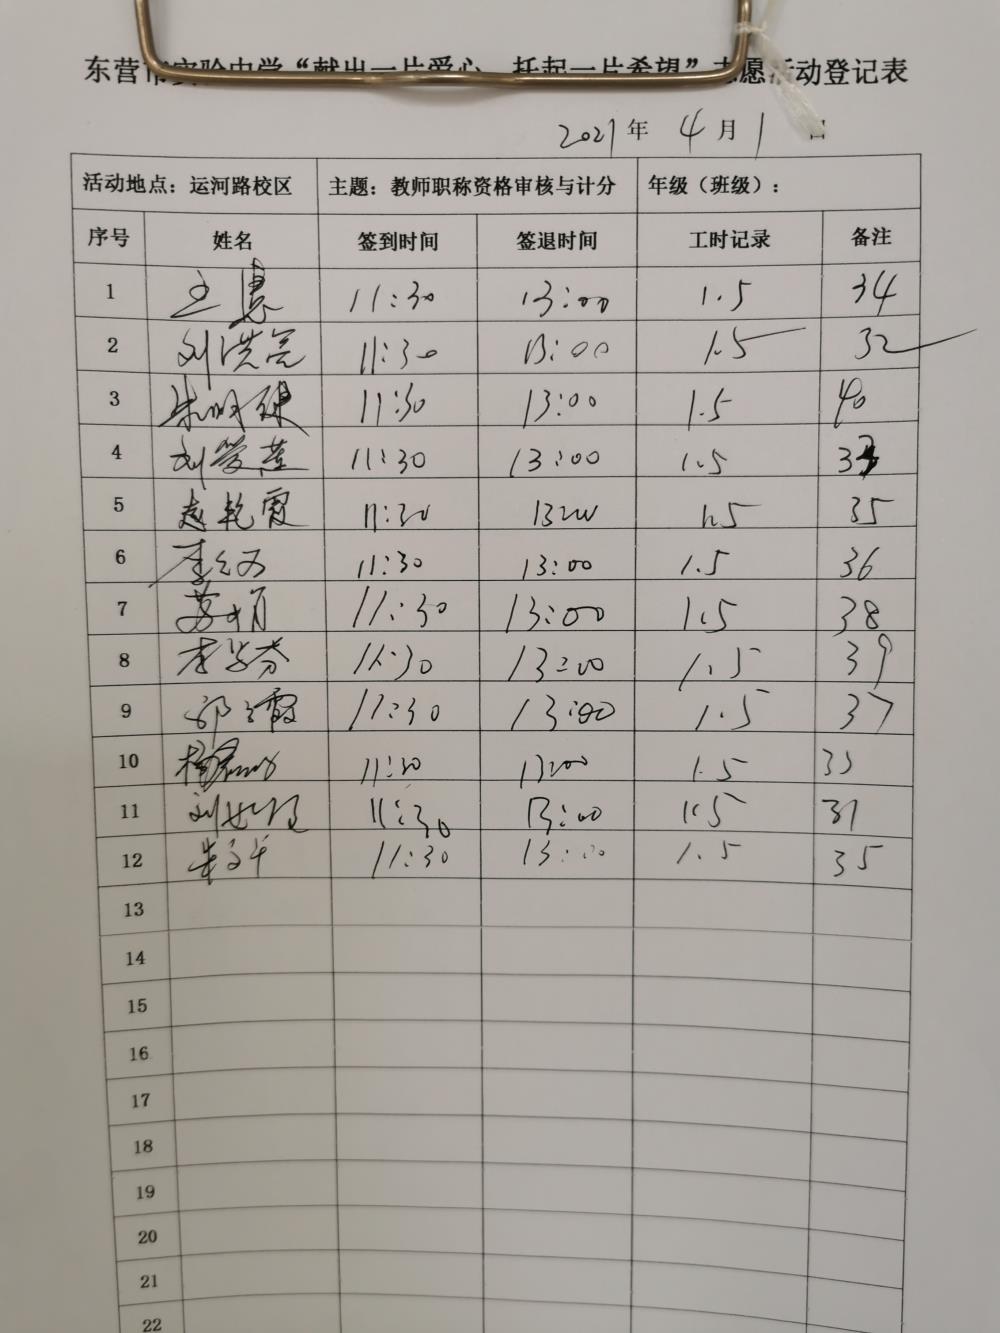 东营市实验中学“献出一片爱心 托起一片希望”志愿活动登记表
2021年 4月1日
活动地点：运河路校区 主题：教师职称资格审核与计分 年级（班级）：
序号 姓名 签到时间 签退时间 工时记录 备注
1 王慧 11:30 13:00 1.5 34
2 刘洪亮 11:30 13:00 1.5 32
3 11:30 13:00 1.5 40
4 刘莹莲 11:30 13:00 1.5
5 赵乾霞 11:30 13:00 1.5 35
6 李 11:30 13:00 1.5 36
7 苏娟 11:30 13:00 1.5 38
8 李学芬 11:30 13:00 1.5 39
9 霞 11:30 13:00 1.5 37
10 杨 11:30 13:00 1.5 33
11 刘 11:30 13:00 1.5 31
12 朱 11:30 13:00 1.5 35
13
14
15
16
17
18
19
20
21
22